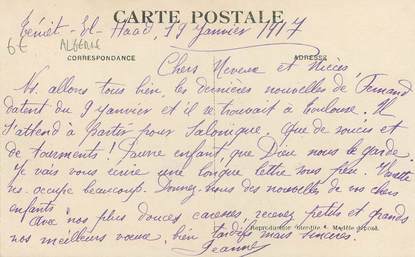 CARTE POSTALE
Téniet-El-Haad, 19 Janvier 1917
6€ ALGERIE
CORRESPONDANCE
ADRESSE
Chers Neveux et Nièces,
Ns. allons tous bien, les dernières nouvelles de Fernand
datent du 9 janvier et il se trouvait à Toulouse. Il
s'attend à partir pour Salonique. Que de soucis et
de tourments! Pauvre enfant, que Dieu nous le garde
Je vais vous écrire une longue lettre sous peu.
ns. occupe beaucoup. Donnez-nous des nouvelles de vos chers
enfants.
Avec nos plus douces caresses, recevez petits et grands
nos meilleurs vœux, bien tardifs mais sincères.
Reproduction interdite. - Modèle déposé.
Jeanne